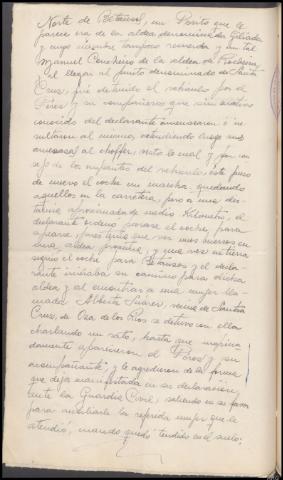 Norte de Betanzos, un Benito que le
parece era de la aldea denominada
y cuyo nombre tampoco recuerda y un tal
Manuel Cencheiro de la aldea de
al llegar al punto denominado de Santa
Cruz, fué detenido el vehículo por el
Pérez y su compañero que sin motivo
conocido del declarante amenazaron é in-
sultaron al mismo, extendiendo luego sus
amenazas al choffer, visto lo cual y por con-
sejo de los ocupantes del vehículo, éste puso
de nuevo el coche en marcha quedando
aquellos en la carretera, pero á una dis-
tancia aproximada de medio kilómetro, el
declarante ordenó parase el coche, para
apearse, pues tenía que ver unos huevos en
una aldea próxima, y una vez en tierra
siguió el coche para Betanzos y el decla-
rante iniciaba su camino para dicha
aldea y al encontrar a una mujer lla-
mada Alberta Suarez, vecina de Santa
Cruz, de Oza de los Ríos se detuvo con ella
charlando un rato, hasta que
damente aparecieron el Pérez y su
acompañante, y le agredieron de la forma
que deja manifestada en su declaración
ante la Guardia Civil, saliendo en su favor
para auxiliarle la referida mujer que le
atendió, cuando quedó tendido en el suelo;